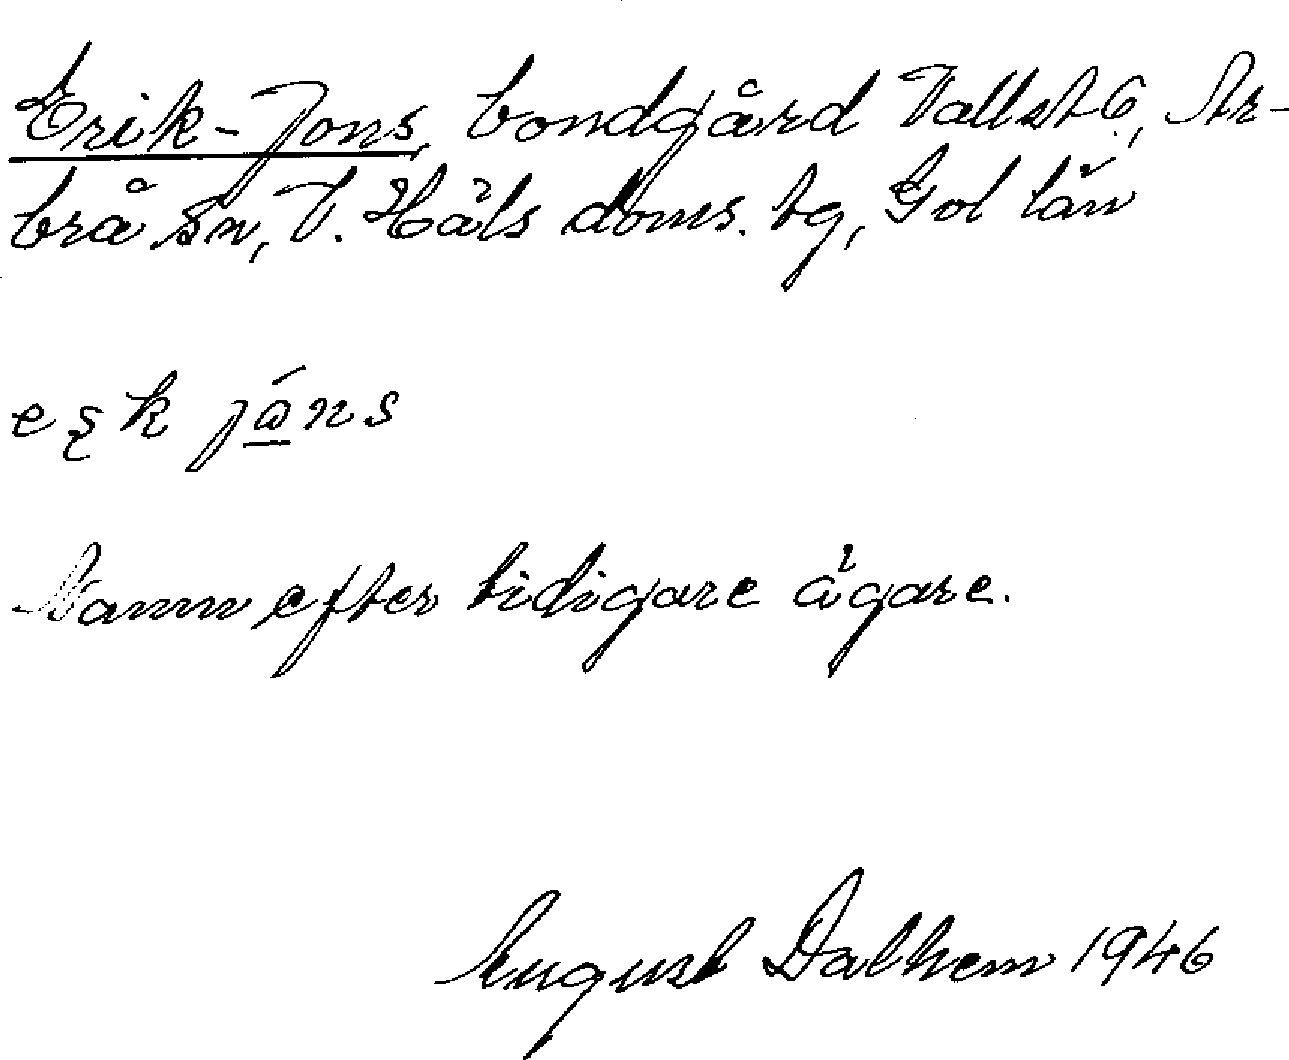 Erik-Jons, bondgård Vallst 6, Ar-
brå sn, V. Häls doms. tg, Gvl län
eʂk jåns
Namn efter tidigare ägare.
August Dalhem 1946